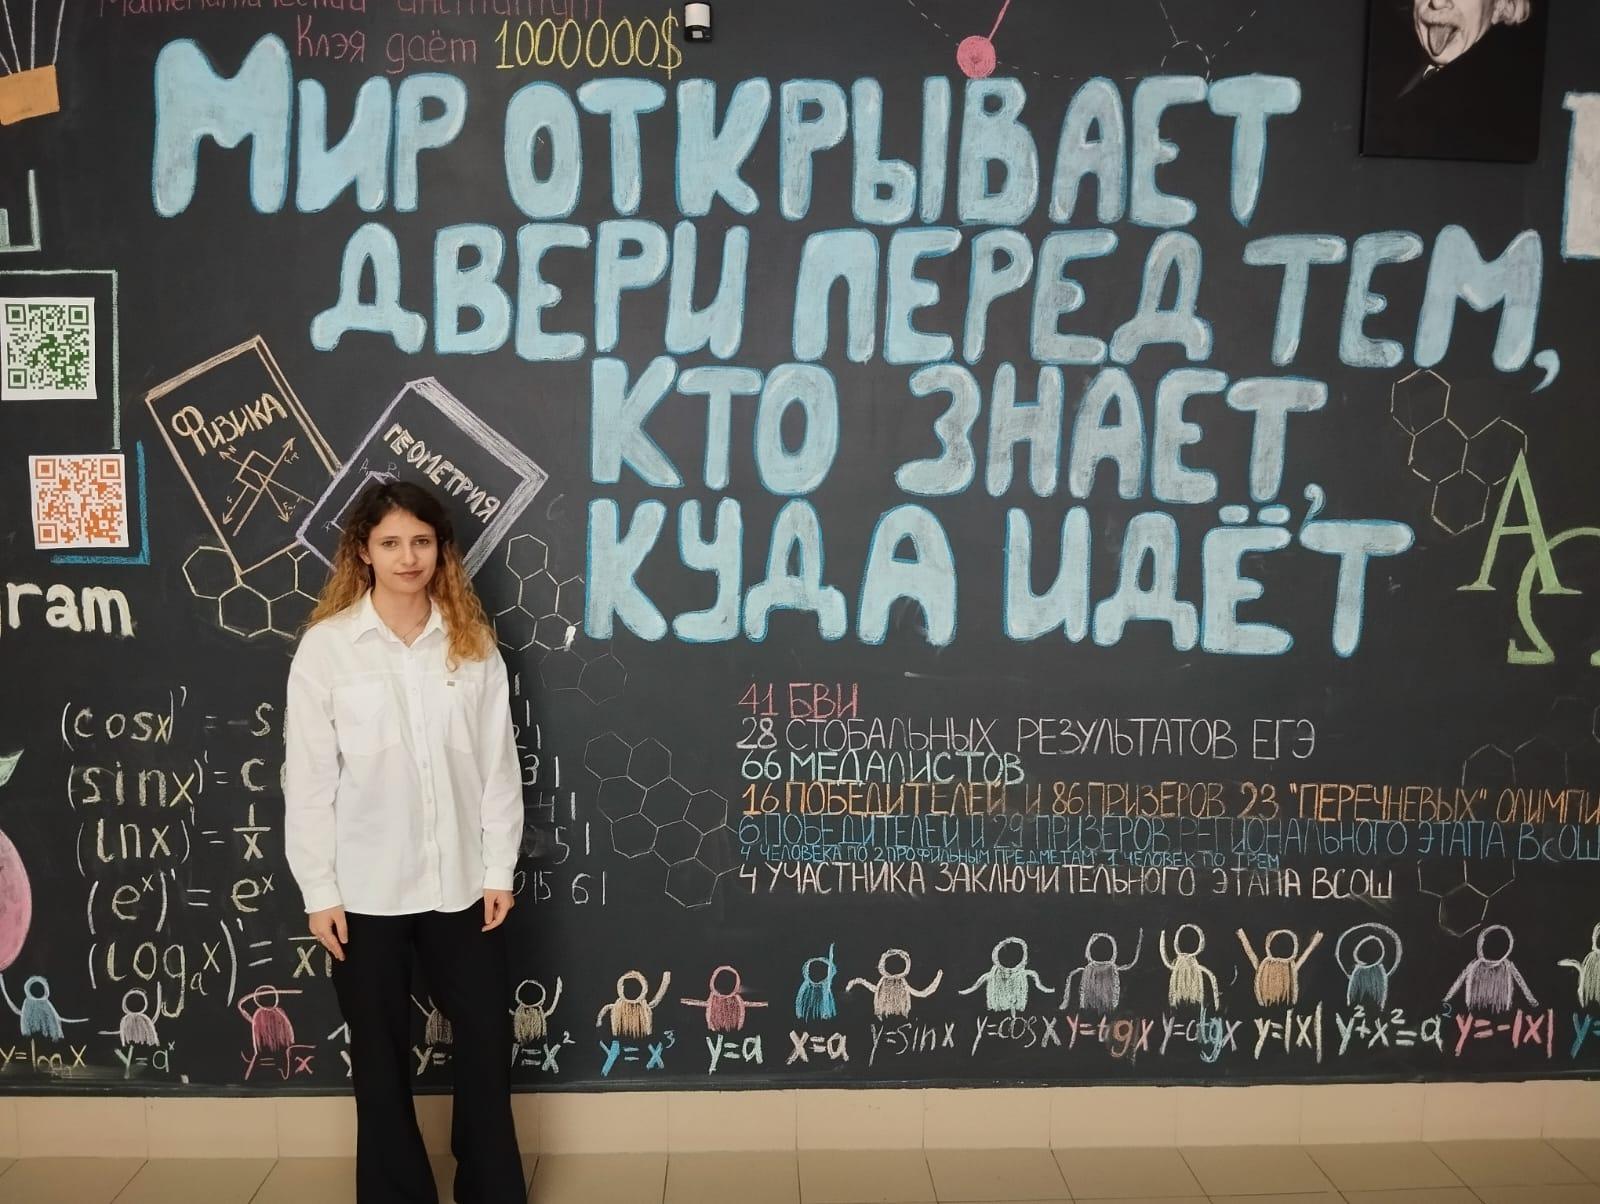 Математический институт
Клэя даёт 1000000$
Мир открывает
двери перед тем,
кто знает,
куда идёт
Физика
Геометрия
gram
(cosx)' = -s
(sinx)' = c
(lnx)' = 1/x
(eˣ)' = eˣ
(logₐx)' =
AS
41 БВИ
28 СТОБАЛЬНЫХ РЕЗУЛЬТАТОВ ЕГЭ
66 МЕДАЛИСТОВ
16 ПОБЕДИТЕЛЕЙ И 86 ПРИЗЕРОВ 23 "ПЕРЕЧНЕВЫХ" ОЛИМПИ
6 ПОБЕДИТЕЛЕЙ И 29 ПРИЗЕРОВ РЕГИОНАЛЬНОГО ЭТАПА ВСОШ
4 ЧЕЛОВЕКА ПО 2 ПРОФИЛЬНЫМ ПРЕДМЕТАМ, 1 ЧЕЛОВЕК ПО ТРЕМ
4 УЧАСТНИКА ЗАКЛЮЧИТЕЛЬНОГО ЭТАПА ВСОШ
y=logₐx y=aˣ y=√x y=x² y=x³ y=a x=a y=sinx y=cosx y=tgx y=ctgx y=|x| y²+x²=a² y=-|x|